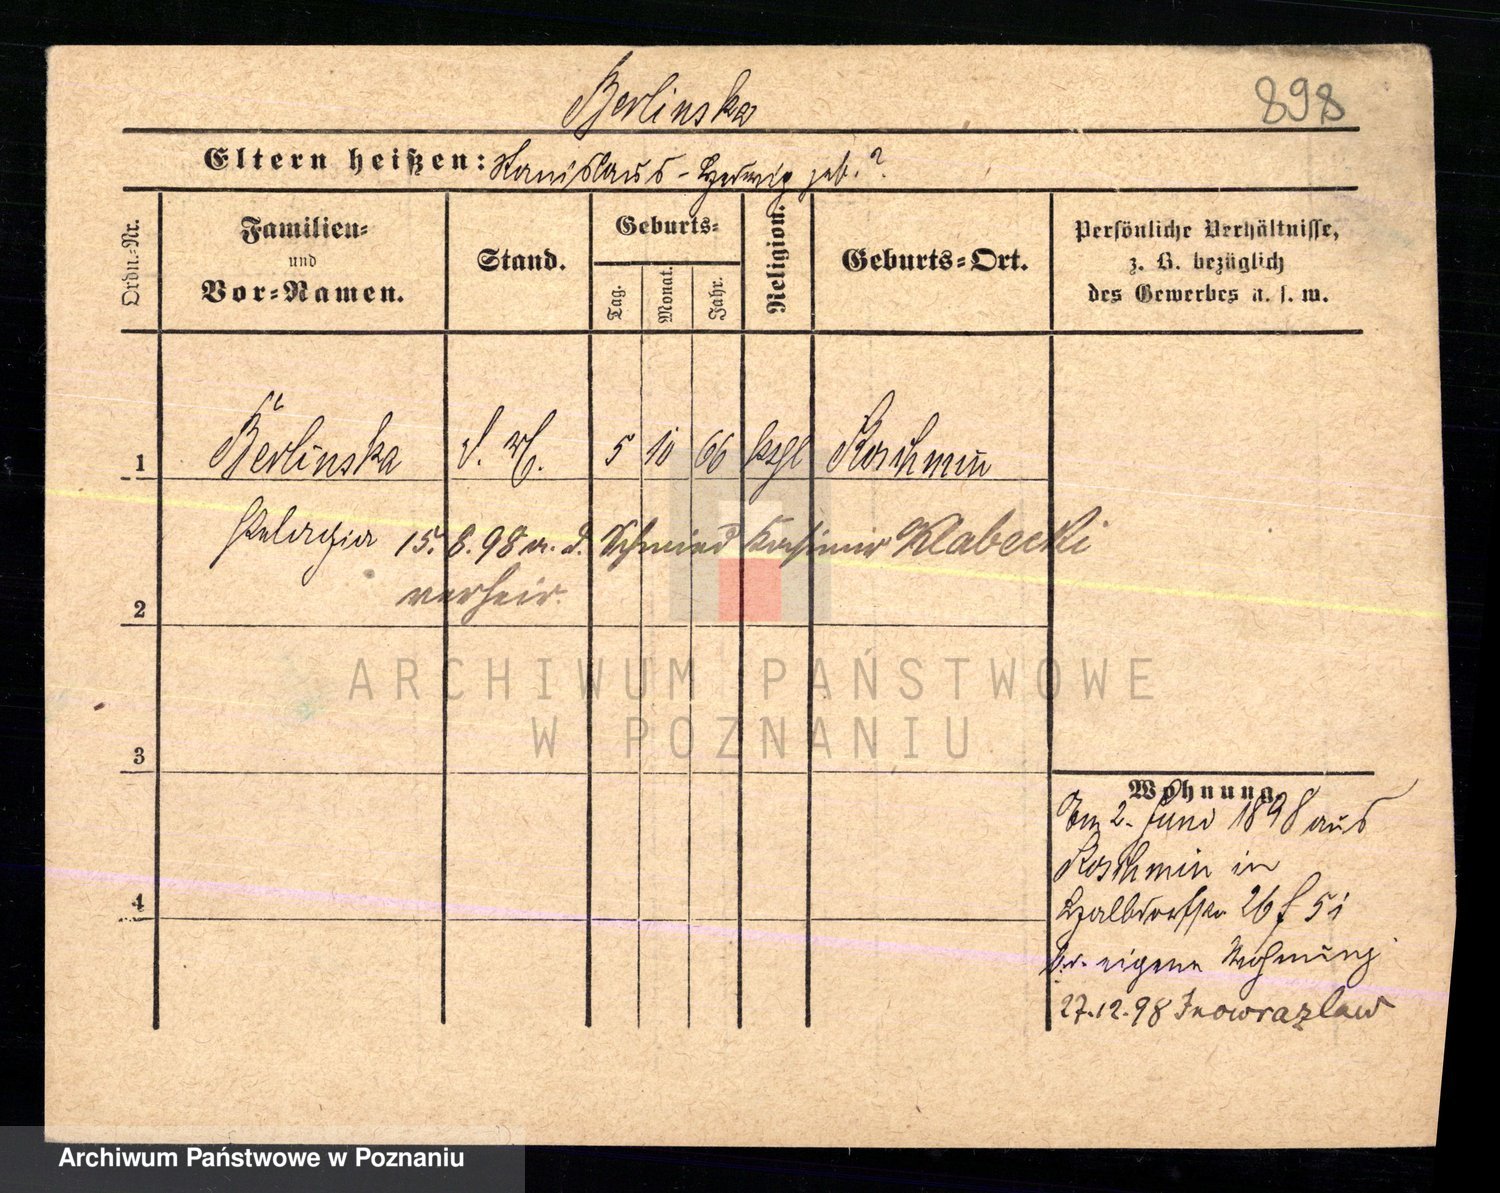 Berlinska
898
Eltern heißen: Stanislaus - Hedwig geb. ?
Ordn.-Nr.
Familien-
und
Vor-Namen.
Stand.
Geburts-
Tag.
Monat.
Jahr.
Religion.
Geburts-Ort.
Persönliche Verhältnisse,
z. B. bezüglich
des Gewerbes u. s. w.
1 Berlinska 5 10 66 kthl Koschmin
Pelagia 15. 8. 98 m. d. Schmied Kasimir Klabecki
2 verheir.
3
4
Wohnung
Am 2. Juni 1898 aus
Koschmin in
Halbdorfstr 26
eigene Wohnung
27.12.98 Inowrazlaw
ARCHIWUM PAŃSTWOWE
W POZNANIU
Archiwum Państwowe w Poznaniu